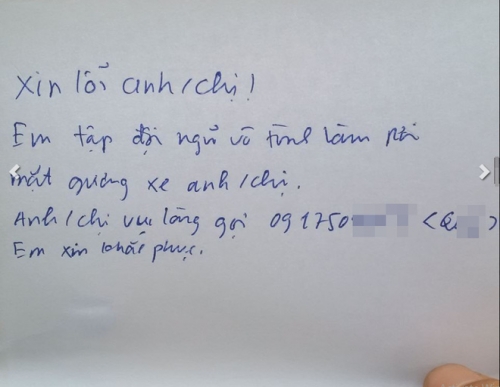 Xin lỗi anh/chị!
Em tập đội ngũ vô tình làm rơi
mặt gương xe anh/chị.
Anh/chị vui lòng gọi 091750
Em xin khắc phục.